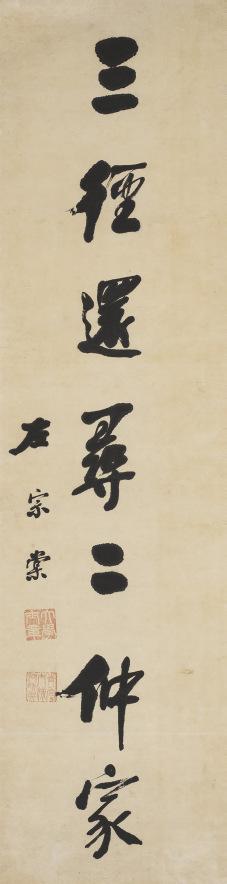 三徑還尋二仲家
左宗棠